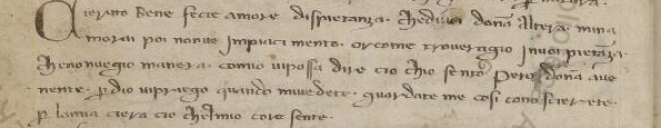 Guerito bene fecie amore dispietanza. chedivoi donā altera. mina
morai poi nonve impiaci mento. or come troveragio in voi pietāza.
chenonvegio manera. comio vi possa dire cio chio sento. Pero donā ave
nente. p dio vipriego quando mivedete. guardate me cosi conoscierete.
p la mia ciera cio chelmio core sente.